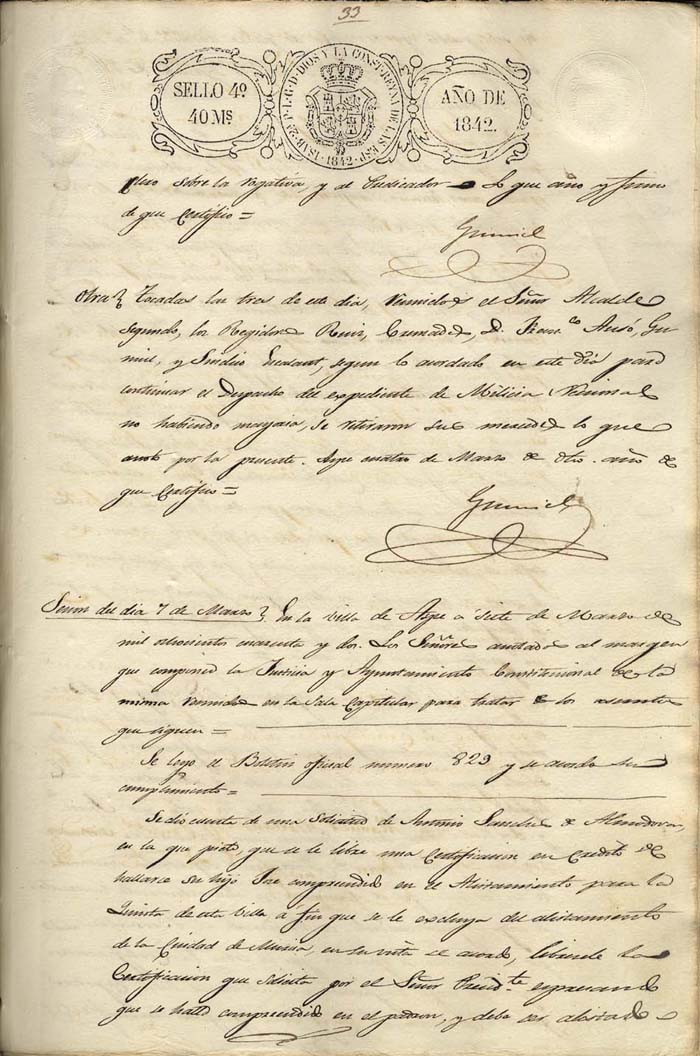 33
SELLO 4º
40 Ms
ISAB. 2ª P. L. G. D. DIOS Y LA CONST. REYNA DE LAS ESP.
1842
AÑO DE
1842.
sobre la negativa, y al Predicador lo que anoto y firmo
de que Certifico=
Gumiel
Otra} Tocadas las tres de este dia, reunidos el Señor Alcalde
segundo, los Regidores Ruiz, Cremades, D. Franco Ausó, Gu-
miel, y Sindico segun lo acordado en este dia para
continuar el Despacho del expediente de Milicia Nacional
no habiendo mayoria, se retiraron sus mercedes lo que
anoto por la presente. Aspe cuatro de Marzo de dho. año de
que Certifico=
Gumiel
Sesion del dia 7 de Marzo} En la Villa de Aspe a Siete de Marzo de
mil ochocientos cuarenta y dos. Los Señores anotados al margen
que componen la Justicia y Ayuntamiento Constitucional de la
misma reunidos en la Sala Capitular para tratar de los asuntos
que siguen=
Se leyo el Boletin oficial numero 829 y se acordo su
cumplimiento=
Se dio cuenta de una Solicitud de Antonio Sanchez de Almodovar,
en la que pide, que se le libre una Certificacion en Credito de
hallarse su hijo Jose comprendido en el Alistamiento para la
Quinta de esta Villa á fin que se le excluya del alistamiento
de la Ciudad de Murcia, en su vista se acordo, librese la
Certificacion que solicita por el Señor Presidte expresando
que se halla comprendido en el padron, y debe ser alistado